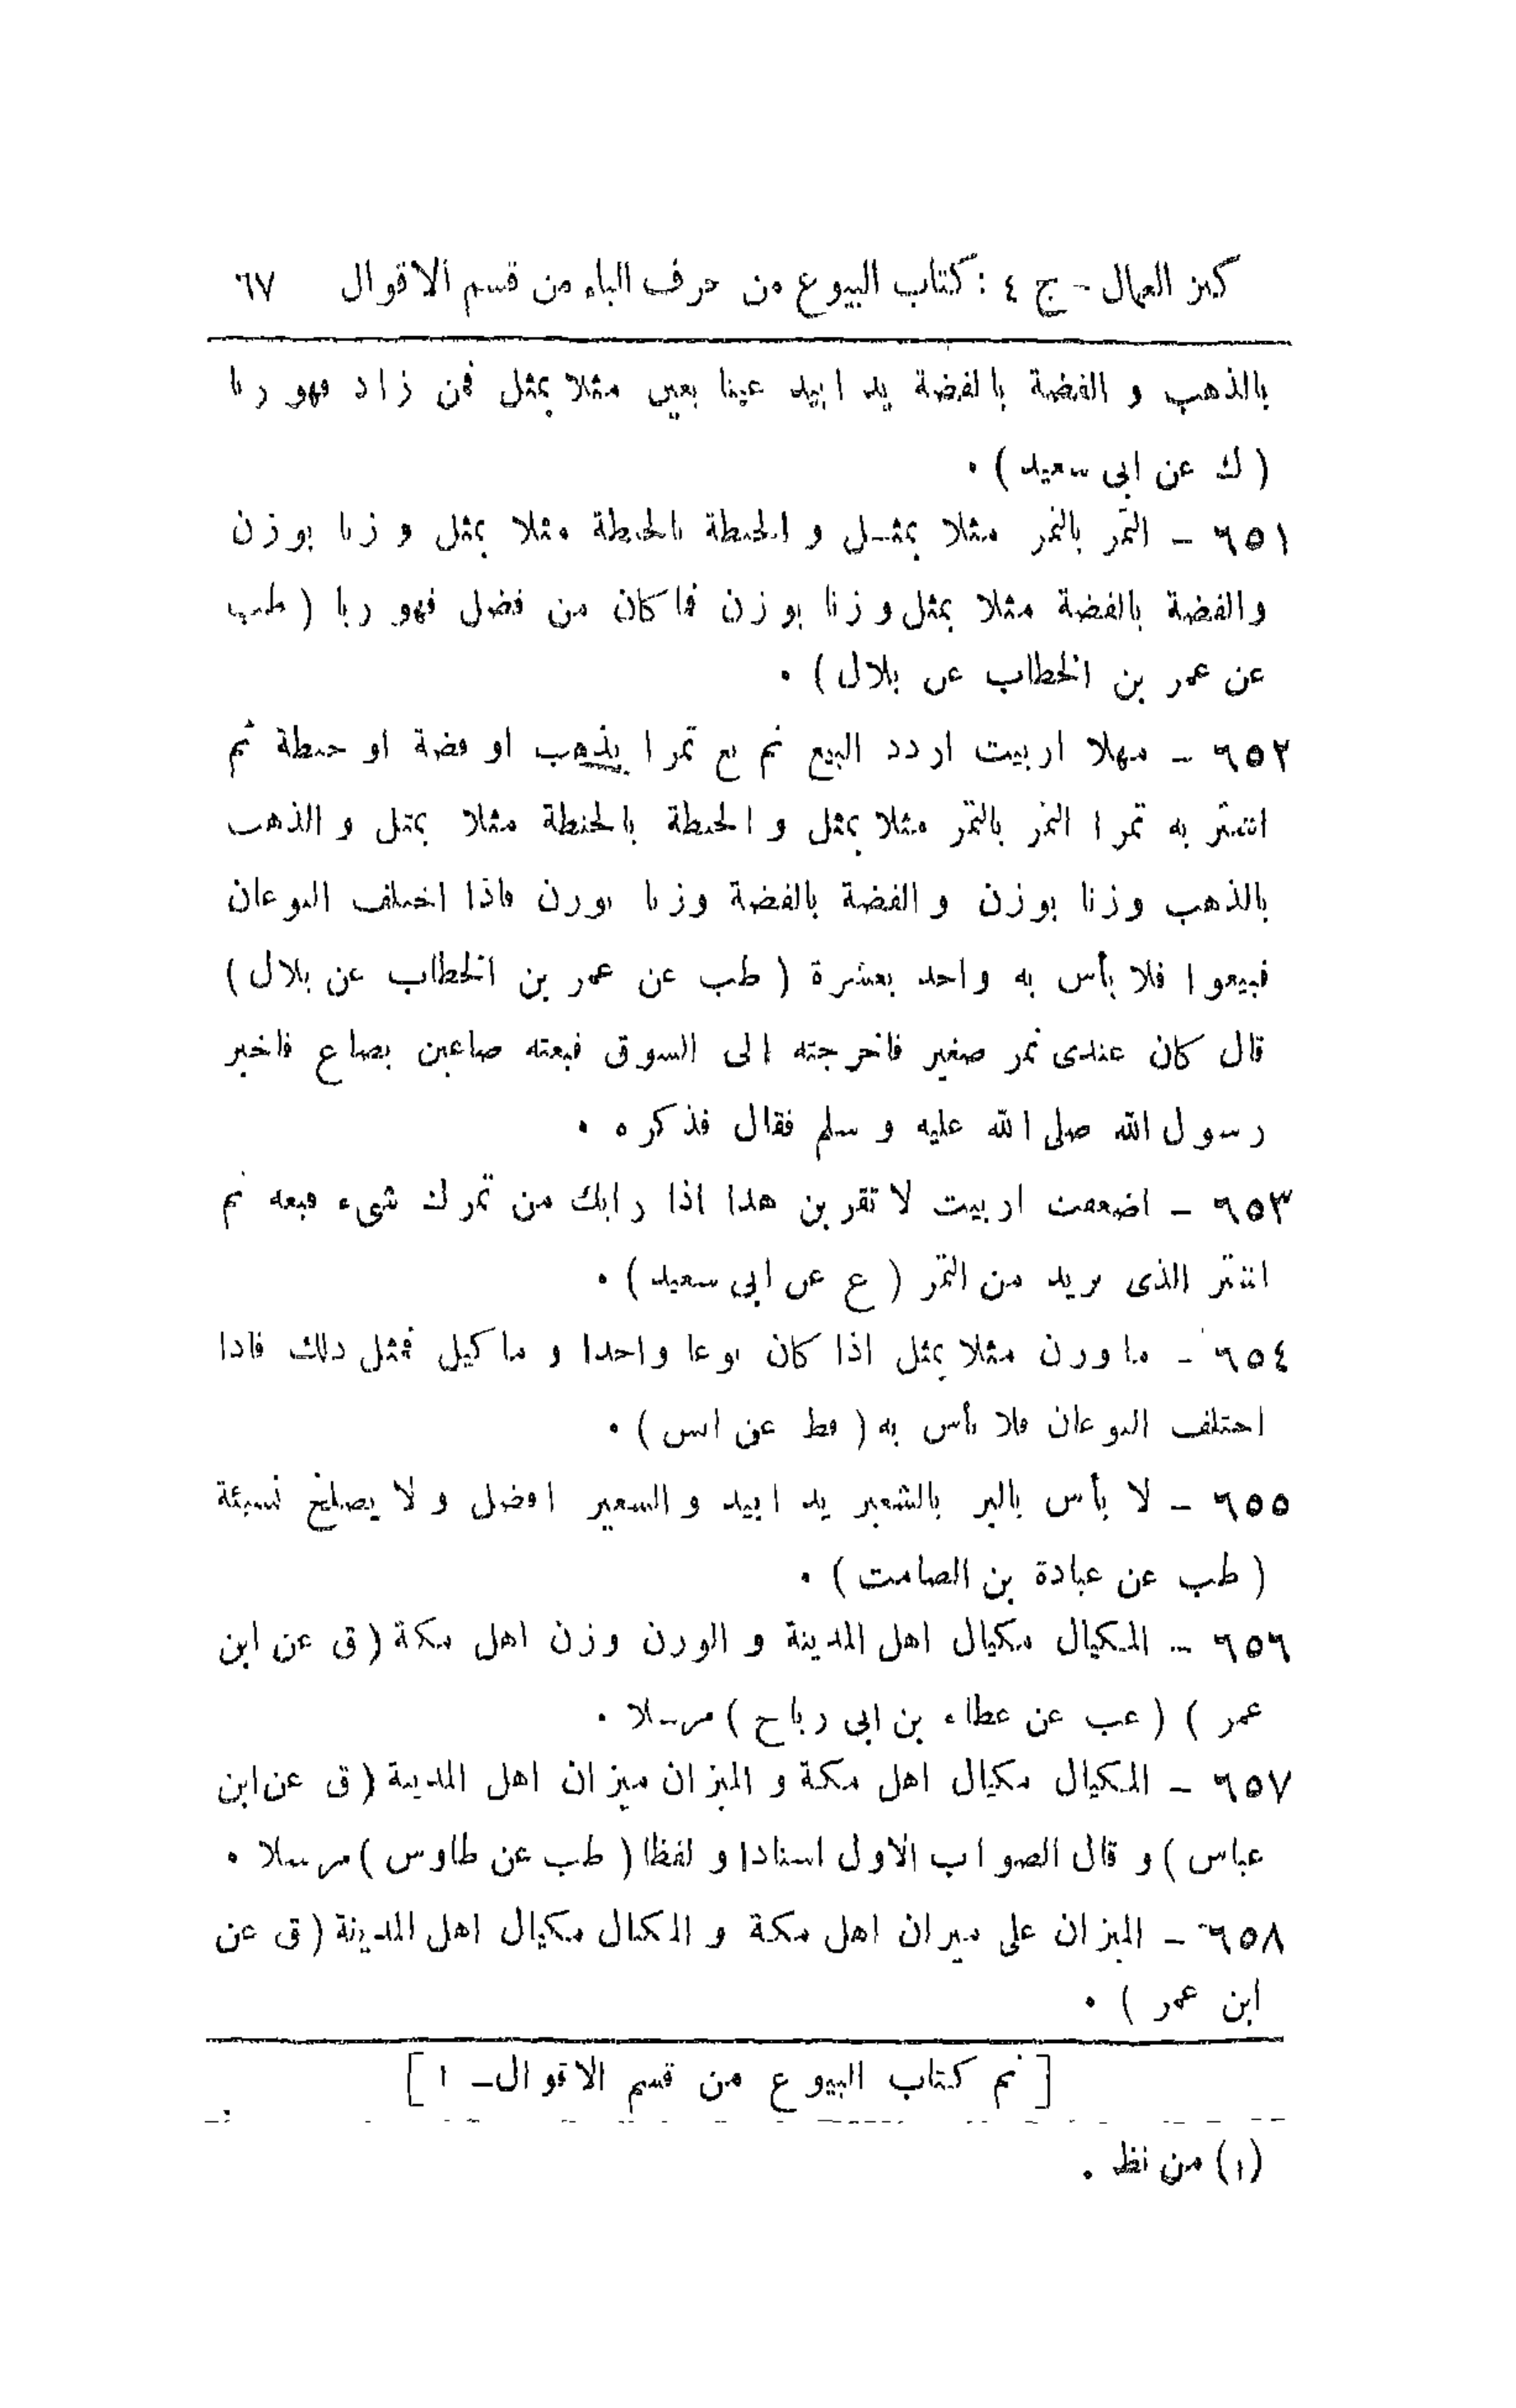 كنز العمال - ج ٤ : كتاب البيوع من حرف الباء من قسم الاقوال ٦٧
بالذهب و الفضة بالفضة يدا بيد عينا بعين مثلا بمثل فمن زاد فهو ربا
( ك عن ابى سعيد ) .
٦٥١ - التمر بالتمر مثلا بمثل و الحنطة بالحنطة مثلا بمثل و زنا بوزن
والفضة بالفضة مثلا بمثل وزنا بوزن فما كان من فضل فهو ربا ( طب
عن عمر بن الخطاب عن بلال ) .
٦٥٢ - مهلا اربيت اردد البيع ثم بع تمرا بذهب او فضة او حنطة ثم
اشتر به تمرا التمر بالتمر مثلا بمثل و الحنطة بالحنطة مثلا بمثل و الذهب
بالذهب وزنا بوزن و الفضة بالفضة وزنا بوزن فاذا اختلف النوعان
فبيعوا فلا بأس به واحد بعشرة ( طب عن عمر بن الخطاب عن بلال )
قال كان عندى تمر صغير فاخرجته الى السوق فبعته صاعين بصاع فاخبر
رسول الله صلى الله عليه و سلم فقال فذكره .
٦٥٣ - اضعفت اربيت لا تقربن هذا اذا رابك من تمرك شىء فبعه ثم
اشتر الذى تريد من التمر ( ع عن ابى سعيد ) .
٦٥٤ - ما وزن مثلا بمثل اذا كان نوعا واحدا و ما كيل فمثل ذلك فاذا
اختلف النوعان فلا بأس به ( قط عن انس ) .
٦٥٥ - لا بأس بالبر بالشعير يدا بيد و الشعير افضل و لا يصلح نسيئة
( طب عن عبادة بن الصامت ) .
٦٥٦ - المكيال مكيال اهل المدينة و الوزن وزن اهل مكة ( ق عن ابن
عمر ) ( عب عن عطاء بن ابى رباح ) مرسلا .
٦٥٧ - المكيال مكيال اهل مكة و الميزان ميزان اهل المدينة ( ق عن ابن
عباس ) و قال الصواب الاول اسنادا و لفظا ( طب عن طاوس ) مرسلا .
٦٥٨ - الميزان على ميزان اهل مكة و المكيال مكيال اهل المدينة ( ق عن
ابن عمر ) .
[ تم كتاب البيوع من قسم الاقوال - ١ ]
(١) من نظ .